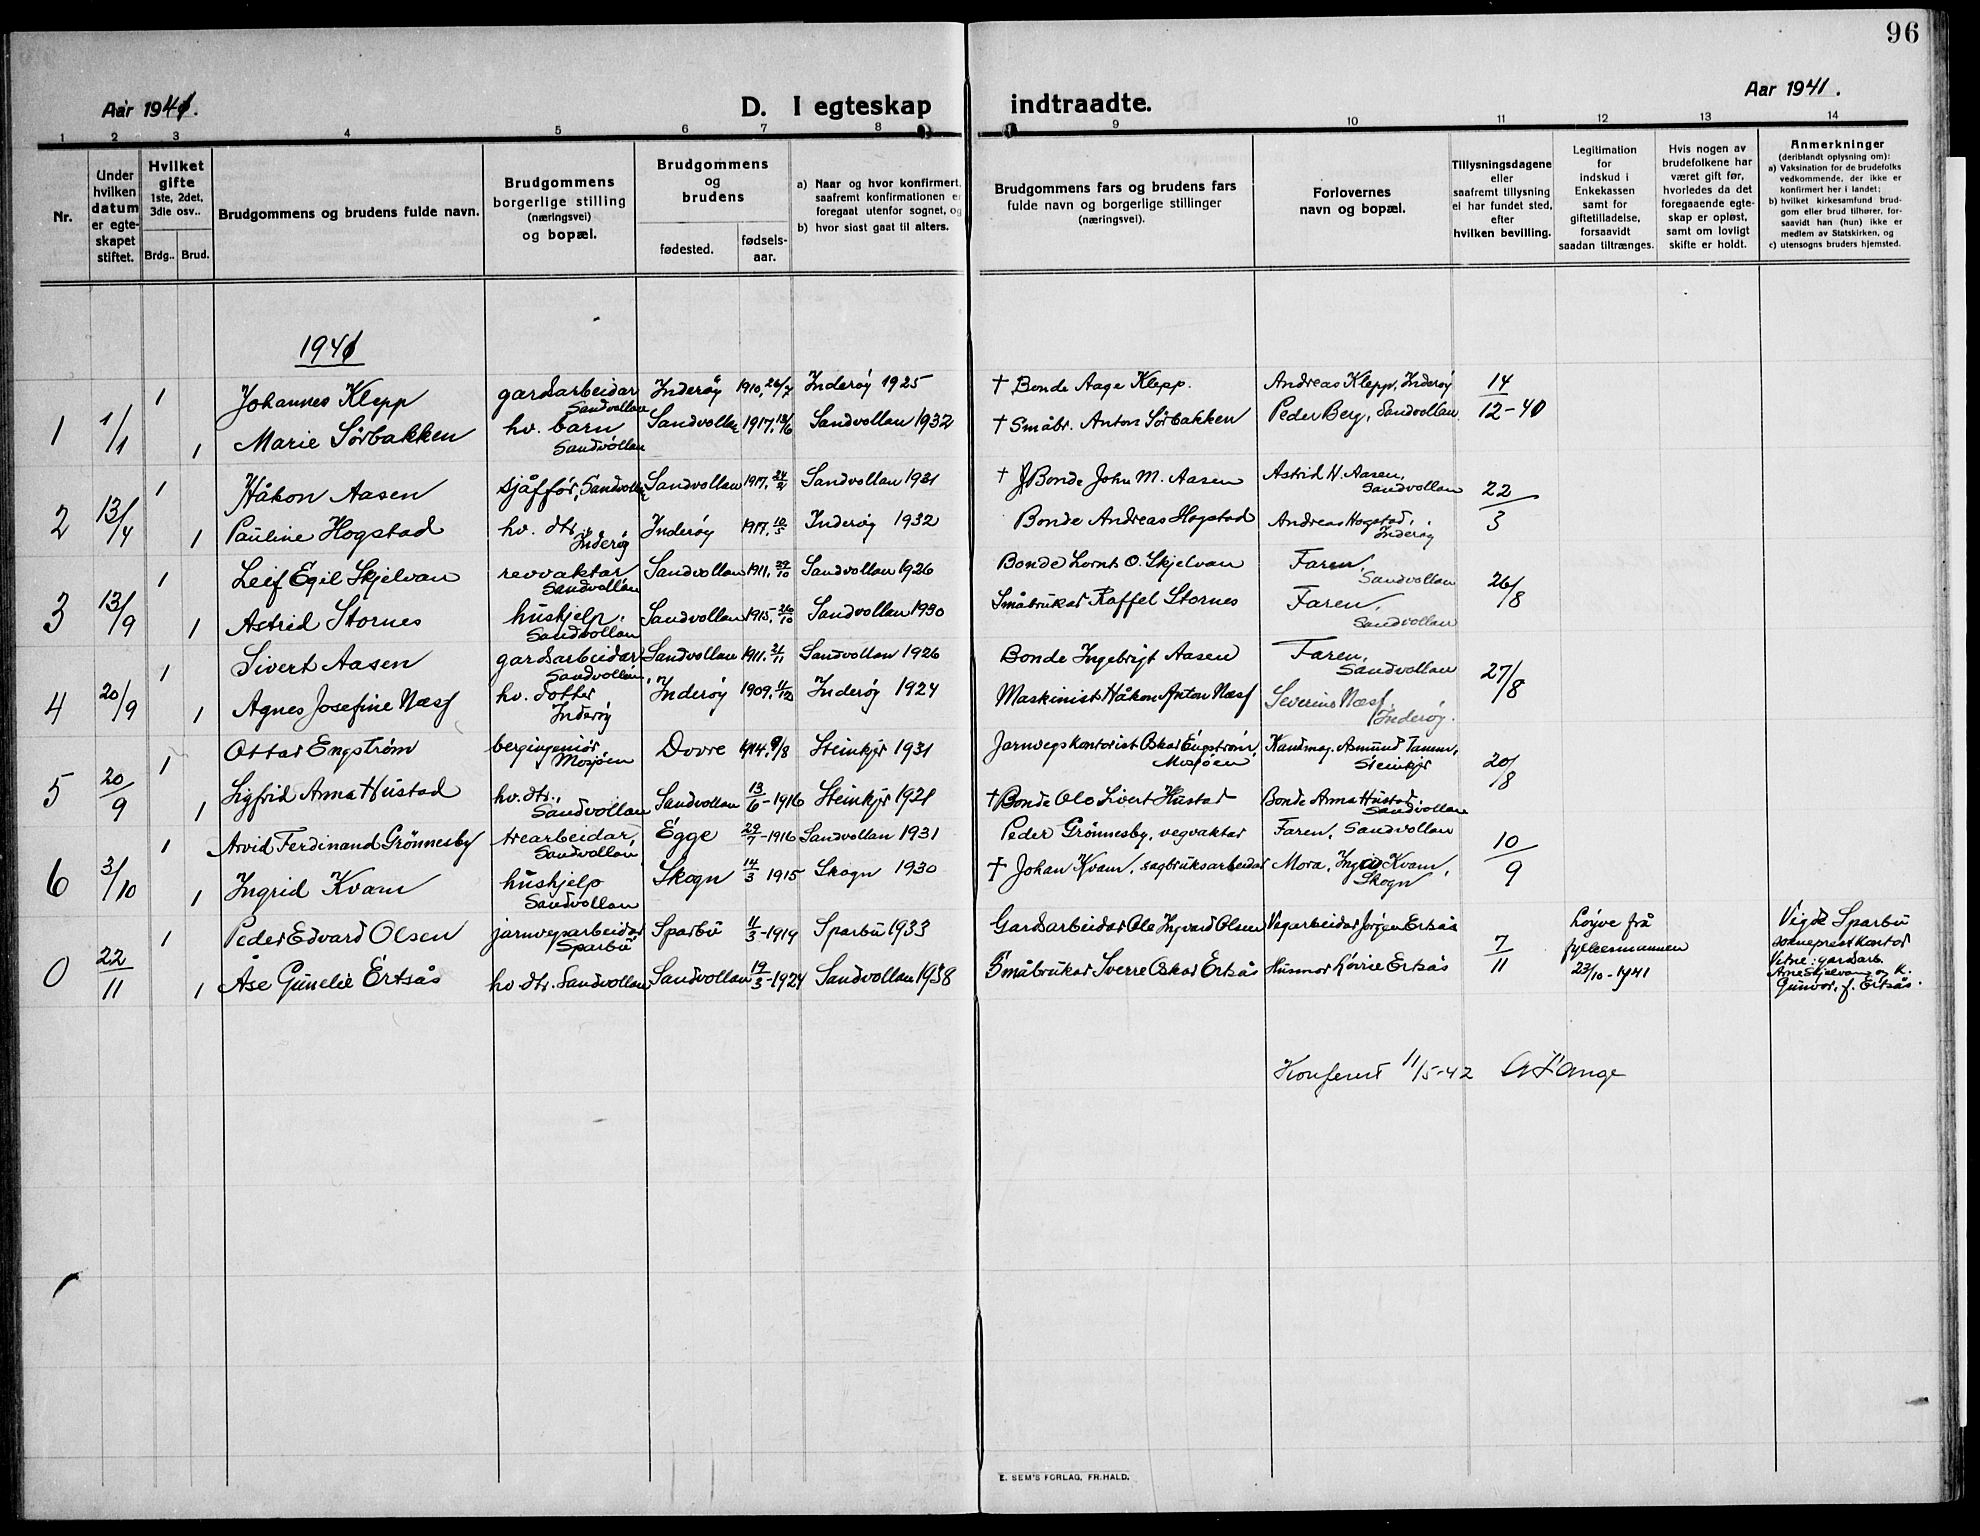 96
Aar 1941.
D. I egteskap indtraadte.
Aar 1941.
1 2 3 4 5 6 7 8 9 10 11 12 13 14
Nr.
Under hvilken datum er egteskapet stiftet.
Hvilket gifte 1ste, 2det, 3die osv..
Brdg.. Brud.
Brudgommens og brudens fulde navn.
Brudgommens borgerlige stilling (næringsvei) og bopæl.
Brudgommens og brudens
fødested. fødsels-aar.
a) Naar og hvor konfirmert, saafremt konfirmationen er foregaat utenfor sognet, og
b) hvor sidst gaat til alters.
Brudgommens fars og brudens fars fulde navn og borgerlige stillinger (næringsvei).
Forlovernes navn og bopæl.
Tillysningsdagene eller saafremt tillysning ei har fundet sted, efter hvilken bevilling.
Legitimation for indskud i Enkekassen samt for giftetilladelse, forsaavidt saadan tiltrænges.
Hvis nogen av brudefolkene har været gift før, hvorledes da det foregaaende egteskap er opløst, samt om lovligt skifte er holdt.
Anmerkninger
(deriblandt oplysning om):
a) Vaksination for de brudefolks vedkommende, der ikke er konfirmert her i landet;
b) hvilket kirkesamfund brudgom eller brud tilhører, forsaavidt han (hun) ikke er medlem av Statskirken, og
c) utensogns bruders hjemsted.
1941
1 1/1 1 Johannes Klepp gardsarbeidar Sandvollan Inderøy 1910, 26/7 Inderøy 1925 † Bonde Aage Klepp. Andreas Klepp, Inderøy 14/12-40
1 Marie Sørbakken hv. barn Sandvollan Sandvollan 1917, Sandvollan 1932 † Småbr. Anton Sørbakken Peder Berg, Sandvollan
2 13/4 1 Håkon Aasen sjåffør, Sandvollan Sandvollan 1917, Sandvollan 1931 † Bonde John M. Aasen Astrid H. Aasen, Sandvollan 22/3
1 Pauline Hogstad hv. dtr., Inderøy Inderøy 1917, 10/5 Inderøy 1932 Bonde Andreas Hogstad Andreas Hogstad, Inderøy
3 13/9 1 Leif Egil Skjelvan revvaktar Sandvollan Sandvollan 1911, Sandvollan 1926 Bonde Lornt O. Skjelvan Faren, Sandvollan 26/8
1 Astrid Stornes hushjelp, Sandvollan Sandvollan 1915, Sandvollan 1930 Småbrukar Raffel Stornes Faren, Sandvollan
4 20/9 1 Sivert Aasen gardsarbeidar Sandvollan Sandvollan 1911, Sandvollan 1926 Bonde Ingebrigt Aasen Faren, Sandvollan 27/8
1 Agnes Josefine Næss hv. dotter Inderøy Inderøy 1909, Inderøy 1924 Maskinist Håkon Anton Næss Severine Næss, Inderøy.
5 20/9 1 Ottar Engstrøm bergingeniør, Mosjøen Dovre 1914, 9/8 Steinkjer 1931 Jarnvegskontorist Oskar Engstrøm, Mosjøen Kandmag. Asmund Tamm, Steinkjer 20/8
1 Sigfrid Anna Hustad hv. dtr., Sandvollan Sandvollan 13/6-1916 Steinkjer 1931 † Bonde Ole Sivert Hustad Bonde Arne Hustad, Sandvollan
6 3/10 1 Arvid Ferdinand Grönnesby trearbeidar, Sandvollan Egge 29/7-1916 Sandvollan 1931 Peder Grönnesby, vegvaktar Faren, Sandvollan 10/9
1 Ingrid Kvam hushjelp Sandvollan Skogn 14/3 1915 Skogn 1930 † Johan Kvam, sagbruksarbeidar Mora, Kvam, Skogn
0 22/11 1 Peder Edvard Olsen jarnvegarbeidar Sparbu Sparbu 11/3-1919 Sparbu 1933 Gardsarbeidar Ole Ingvard Olsen Vegarbeidar Jørgen Ertsås 7/11 Løyve frå fylkesmannen 23/10-1941 Vigde Sparbu sokneprestkontor Vitne: gardarb. Arne Skjelvan og K. Gunvor, f. Ertsås.
1 Åse Gunelie Ertsås hv. dtr. Sandvollan Sandvollan 19/3-1924 Sandvollan 1938 Småbrukar Sverre Oskar Ertsås Husmor Ertsås
Konferert 11/5-42 A Lange
E. SEM'S FORLAG, FR.HALD.